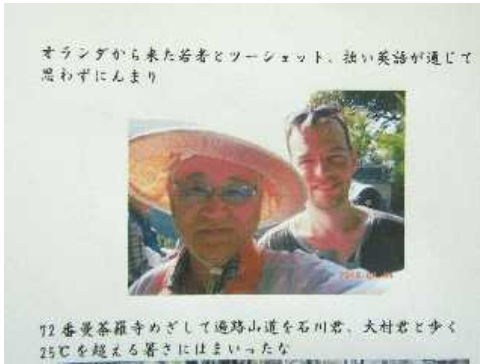 オランダから来た若者とツーショット、拙い英語が通じて
思わずにんまり
72番曼荼羅寺めざして遍路山道を石川君、大村君と歩く
25℃を超える暑さにはまいったな